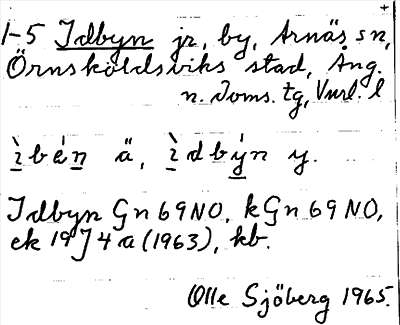 1-5 Idbyn jr, by, Arnäs sn,
Örnsköldsviks stad, Ång.
n. doms. tg, Vurl. l
ìbén ä, ìdbýn y.
Idbyn Gn 69 NO, kGn 69 NO,
ek 19J4a (1963), kb.
Olle Sjöberg 1965.